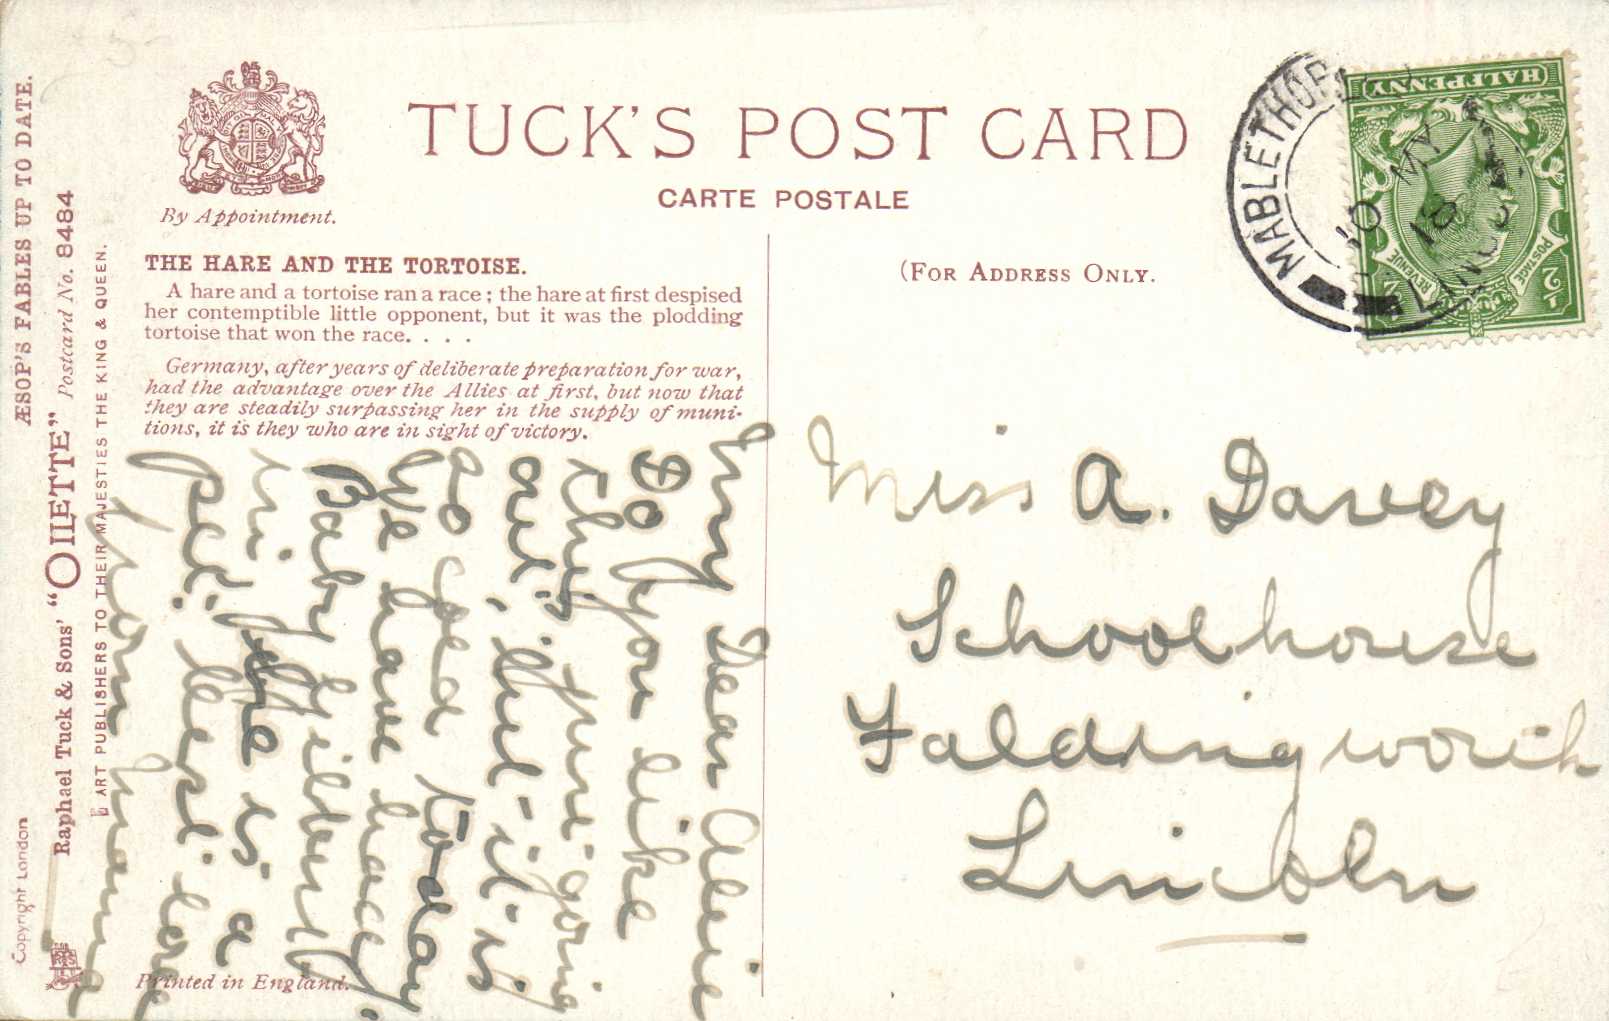 TUCK'S POST CARD
CARTE POSTALE
By Appointment.
THE HARE AND THE TORTOISE.
A hare and a tortoise ran a race; the hare at first despised
her contemptible little opponent, but it was the plodding
tortoise that won the race. . . .
Germany, after years of deliberate preparation for war,
had the advantage over the Allies at first, but now that
they are steadily surpassing her in the supply of muni-
tions, it is they who are in sight of victory.
(FOR ADDRESS ONLY.
MABLETHORPE
10 MY
18
LINCS
HALFPENNY
POSTAGE
REVENUE
½
½
ÆSOP'S FABLES UP TO DATE.
Raphael Tuck & Sons' "OILETTE" Postcard No. 8484
ART PUBLISHERS TO THEIR MAJESTIES THE KING & QUEEN.
Copyright London
Printed in England.
My Dear Alice
Do you like
this, just going
out, but it is
so cold today
We have had
Baby Gilbert
in, He is a
pet. best love
from Mama
Miss A. Davey
Schoolhouse
Faldingworth
Lincoln